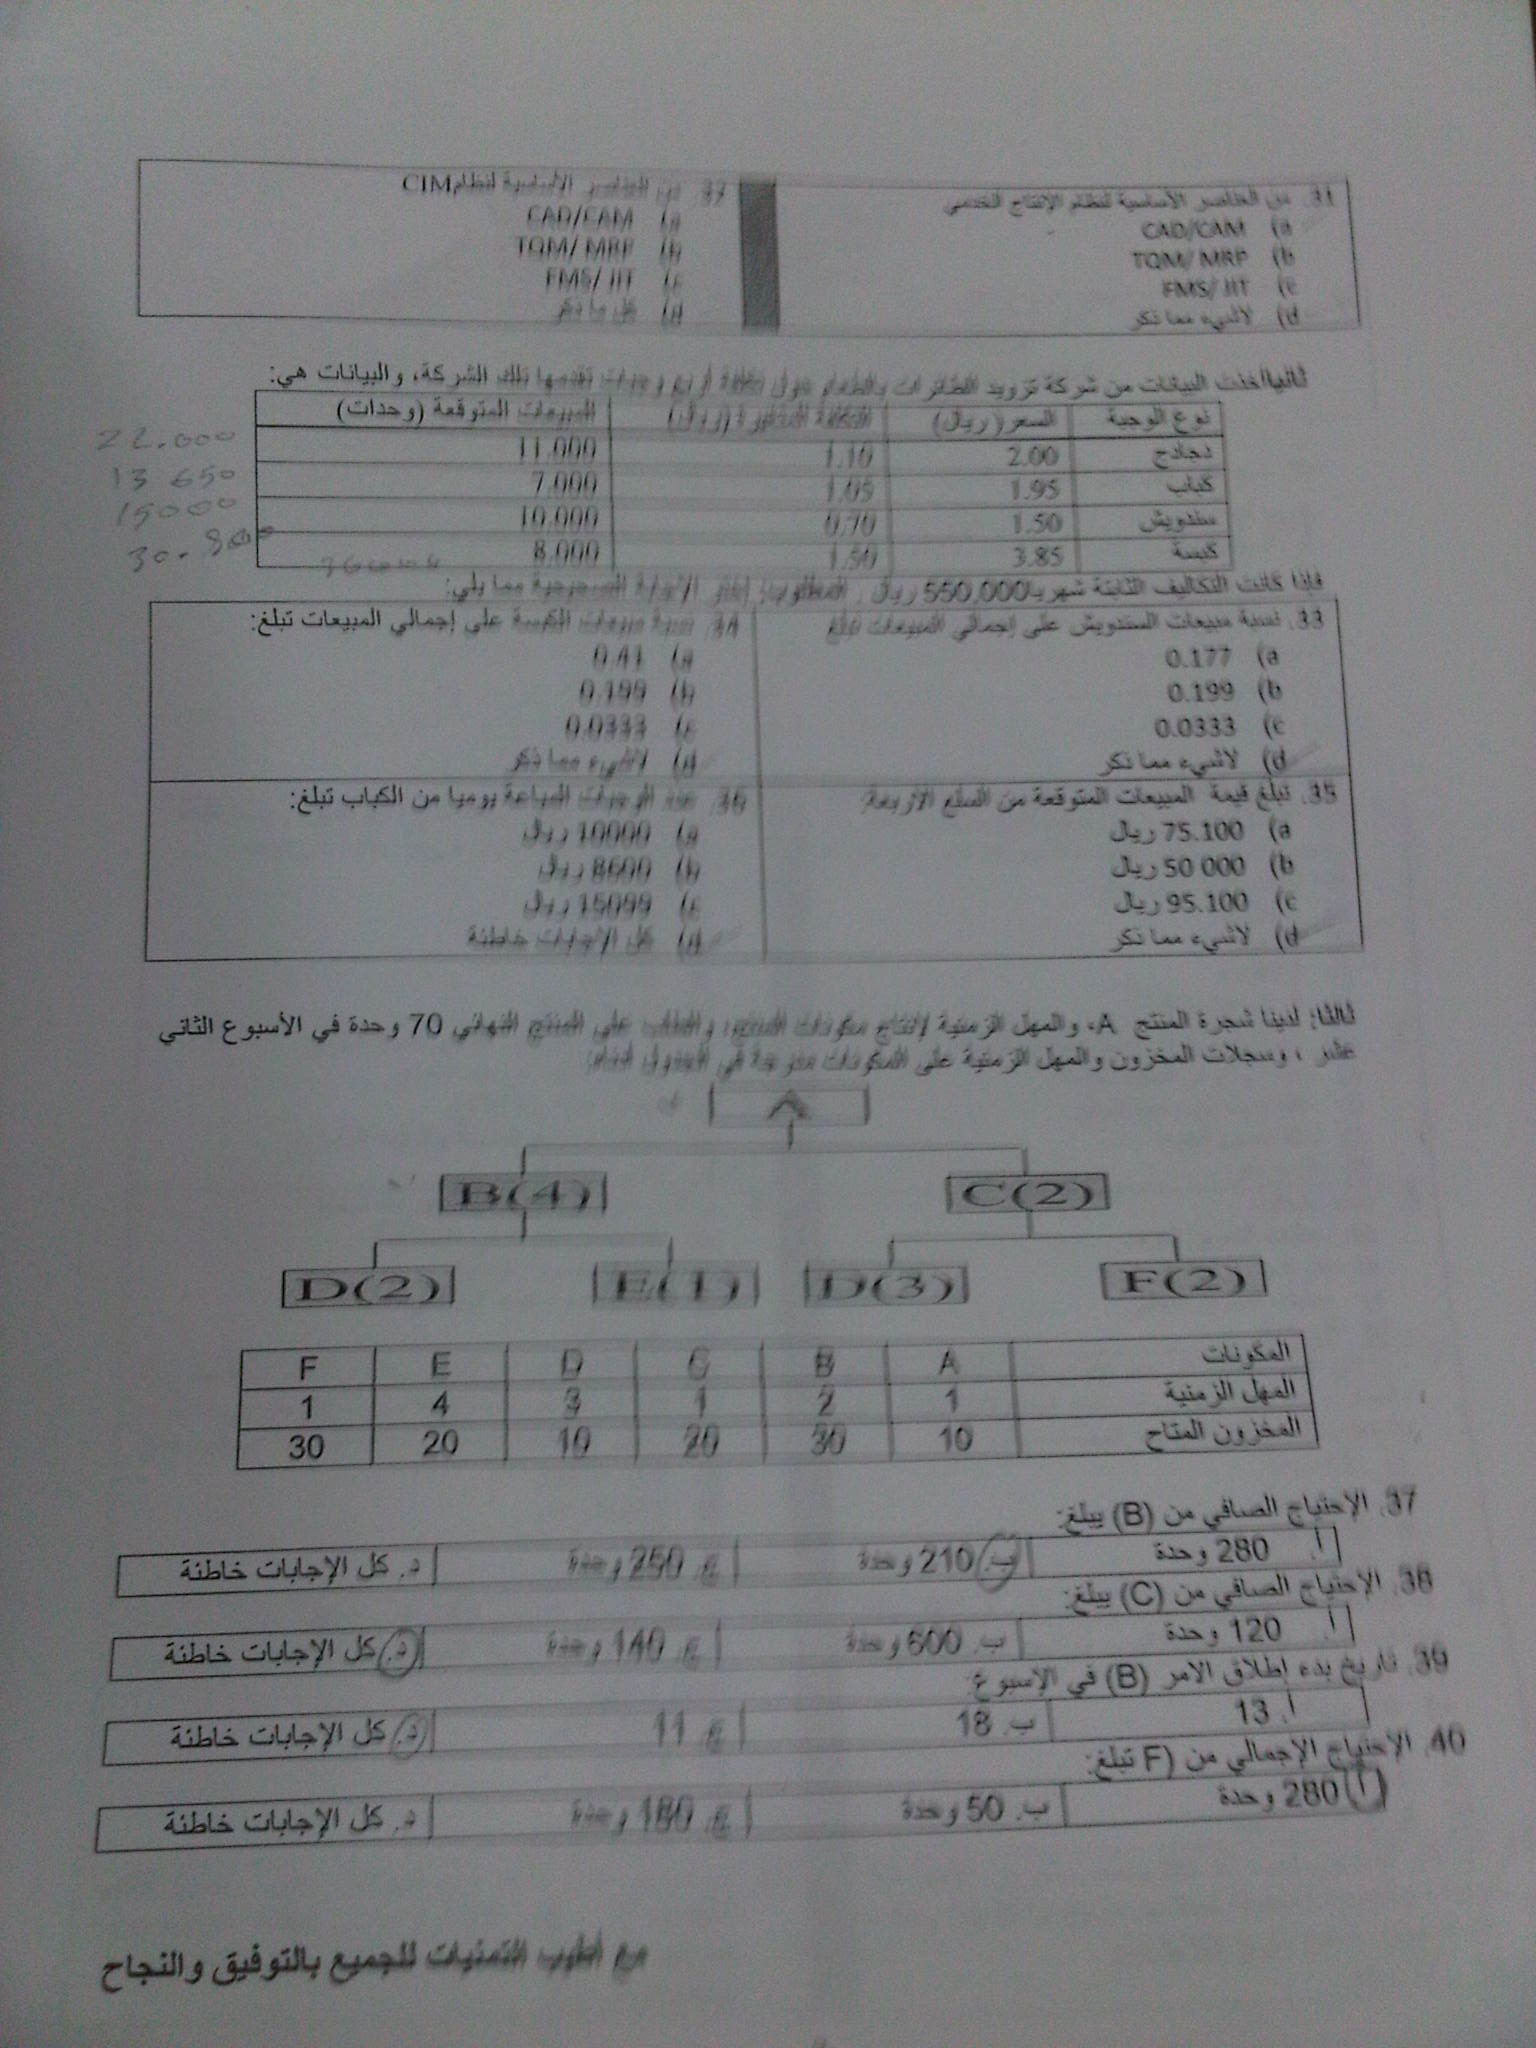 31. من العناصر الأساسية لنظام الإنتاج الخدمي
a) CAD/CAM
b) TQM/ MRP
c) FMS/ JIT
d) لاشيء مما ذكر
32. من العناصر الأساسية لنظام CIM
a) CAD/CAM
b) TQM/ MRP
c) FMS/ JIT
d) كل ما ذكر
ثانيا: أخذت البيانات من شركة تزويد الطائرات بالطعام حول تكلفة أربع وجبات تقدمها تلك الشركة، والبيانات هي:
نوع الوجبة السعر (ريال) التكلفة المتغيرة (ريال) المبيعات المتوقعة (وحدات)
دجاج 2.00 1.10 11.000 22.000
كباب 1.95 1.05 7.000 13 650
سندويش 1.50 0.70 10.000 15000
كبسة 3.85 1.50 8.000
فإذا كانت التكاليف الثابتة شهريا 550,000 ريال . المطلوب: اختر الإجابة الصحيحة مما يلي:
33. نسبة مبيعات السندويش على إجمالي المبيعات تبلغ
a) 0.177
b) 0.199
c) 0.0333
d) لاشيء مما ذكر
34. نسبة مبيعات الكبسة على إجمالي المبيعات تبلغ:
a) 0.41
b) 0.199
c) 0.0333
d) لاشيء مما ذكر
35. تبلغ قيمة المبيعات المتوقعة من السلع الأربعة:
a) 75.100 ريال
b) 50 000 ريال
c) 95.100 ريال
d) لاشيء مما ذكر
36. عدد الوجبات المباعة يوميا من الكباب تبلغ:
a) 10000 ريال
b) 8600 ريال
c) 15099 ريال
d) كل الإجابات خاطئة
ثالثا: لدينا شجرة المنتج A، والمهل الزمنية لإنتاج مكونات المنتج، والطلب على المنتج النهائي 70 وحدة في الأسبوع الثاني
عشر ، وسجلات المخزون والمهل الزمنية على المكونات مدرجة في الجدول أدناه:
A
B(4) C(2)
D(2) E(1) D(3) F(2)
المكونات A B C D E F
المهل الزمنية 1 2 1 3 4 1
المخزون المتاح 10 30 20 10 20 30
37. الإحتياج الصافي من (B) يبلغ:
أ. 280 وحدة ب. 210 وحدة ج. 250 وحدة د. كل الإجابات خاطئة
38. الإحتياج الصافي من (C) يبلغ:
أ. 120 وحدة ب. 600 وحدة ج. 140 وحدة د. كل الإجابات خاطئة
39. تاريخ بدء إطلاق الامر (B) في الإسبوع:
أ. 13 ب. 18 ج. 11 د. كل الإجابات خاطئة
40. الإحتياج الإجمالي من (F تبلغ:
أ) 280 وحدة ب. 50 وحدة ج. 180 وحدة د. كل الإجابات خاطئة
مع أطيب التمنيات للجميع بالتوفيق والنجاح